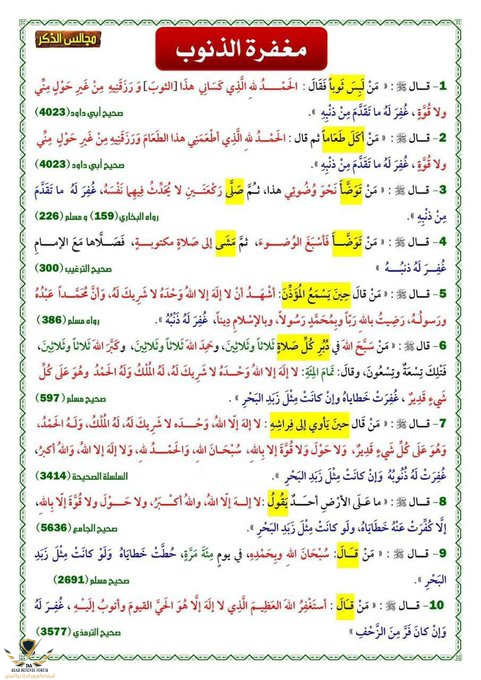 مجالس الذكر
مغفرة الذنوب
1- قـال ﷺ : « مَنْ لَبِسَ ثَوباً فَقَالَ : الحَمْـــدُ للهِ الَّذِي كَسَانِي هذَا [الثوبَ] وَ رَزَقَنِيهِ مِنْ غَيرِ حَوْلٍ مِنِّي
ولا قُوَّةٍ ، غُفِرَ لَهُ ما تَقَدَّمَ مِنْ ذنْبِهِ ». صحيح أبي داود(4023)
2- قـال ﷺ : « مَنْ أكَلَ طَعَاماً ثم قال : الحَمْدُ للهِ الَّذِي أَطْعَمَنِي هذا الطَعَامَ وَرَزَقَنِيهِ مِنْ غَيرِ حَوْلٍ مِنِّي
ولا قُوَّةٍ ، غُفِرَ لَهُ ما تَقَدَّمَ مِنْ ذنْبِهِ ». صحيح أبي داود(4023)
3- قـال ﷺ : « مَنْ تَوَضَّأَ نَحْوَ وُضُوئِي هذا، ثـمَّ صَلَّى رَكْعَتَيْنِ لا يُحَدِّثُ فِيهِما نَفْسَهُ، غُفِرَ لَهُ ما تَقَدَّمَ
مِنْ ذَنْبِهِ ». رواه البخاري (159) و مسلم (226)
4- قـال ﷺ : « مَنْ تَوَضَّأَ فَأسْبَغَ الوُضـوءَ، ثمَّ مَشَى إلى صَلاةٍ مكتوبـةٍ، فَصَلَّاها مَعَ الإمــامِ
غُفِـرَ لَهُ ذنبُـهُ » صحيح الترغيب (300)
5- قـال ﷺ : « مَنْ قالَ حِينَ يَسْمَعُ المُؤَذِّنَ: أَشْهَدُ أنْ لا إلَهَ إلا اللهُ وَحْدَهُ لا شَرِيكَ لَهُ، وَأنَّ مُحَمَّداً عَبْدُهُ
ورَسولُـهُ، رَضِيتُ باللهِ رَبّاً وبِمُحَمَّدٍ رَسُولاً، وبالإسْلامِ دِيناً، غُفِرَ لَهُ ذَنْبُهُ ». رواه مسلم (386)
6- قال ﷺ : « مَنْ سَبَّحَ اللهَ في دُبُرِ كُلِّ صَلاةٍ ثَلاثاً وثَلاثِينَ، وحَمِدَ اللهَ ثَلاثاً وثَلاثِينَ، وكَبَّرَ اللهَ ثَلاثاً وثَلاثِينَ،
فَتْلِكَ تِسْعَةٌ وتِسْعُونَ، وقالَ: تَمَامَ المِئَةِ: لا إلَهَ إلا اللهُ وَحْدَهُ لا شَرِيكَ لَهُ، لَهُ المُلْكُ ولَهُ الحَمْدُ وهُوَ عَلَى كُلِّ
شيءٍ قَدِيرٌ ، غُفِرَتْ خَطَاياهُ وإنْ كانَتْ مِثْلَ زَبَدِ البَحْرِ ». صحيح مسلم (597)
7- قال ﷺ : « مَنْ قال حينَ يَأوي إلى فِراشِهِ : لا إلَهَ إلَّا اللهُ، وَحْـدَه لا شَريكَ لَهُ، لَهُ المُلْكُ، ولَـهُ الحَمْدُ،
وَهُوَ عَلى كُلِّ شَيءٍ قَديرٌ، وَلا حَوْلَ وَلا قُوَّةَ إلا بِاللهِ، سُبْحَـانَ اللهِ، والحَمْـدُ لله، وَلا إلهَ إلا اللهُ، وَاللهُ أكبَرُ،
غُفِرَتْ لَهُ ذُنُوبُهُ وَإنْ كانَتْ مِثْلَ زَبَدِ البَحْرِ ». السلسلة الصحيحة (3414)
8- قـال ﷺ : « ما عَـلى الأرْضِ أحـدٌ يَقُولُ :لا إلـهَ إلَّا اللهُ، واللهُ أكْبَـرُ، ولا حَــوْلَ ولا قُوَّةَ إلَّا بِاللهِ،
إلَّا كُفِّرَتْ عَنْهُ خَطَايَاهُ، ولَو كانَتْ مِثْلَ زَبَدِ البَحْرِ ». صحيح الجامع (5636)
9- قـال ﷺ : « مَنْ قـالَ: سُبْحَانَ اللهِ وبِحَمْدِهِ، في يومٍ مِئَةَ مَرَّةٍ، حُطَّتْ خَطاياهُ وَلَوْ كانَتْ مِثْلَ زَبَدِ
البَحْرِ ». صحيح مسلم (2691)
10- قـال ﷺ : « مَنْ قـالَ : أستَغْفِرُ اللهَ العَظِيمَ الَّذِي لا إلهَ إلَّا هُوَ الحَيَّ القيومَ وأتوبُ إلَيـْهِ ، غُفِـرَ لَهُ
وَإنْ كان فَرَّ مِنَ الزَّحْفِ » صحيح الترمذي (3577)
ARAB DEFENSE FORUM